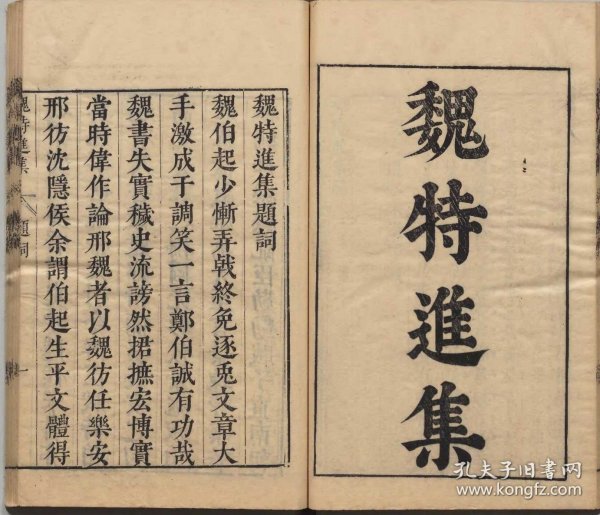 魏特進集
魏特進集題詞
魏伯起少慚弄戟終免逐兎文章大
手激成于調笑一言鄭伯誠有功哉
魏書失實穢史流謗然捃摭宏博實
當時偉作論邢魏者以魏彷任樂安
邢彷沈隱侯余謂伯起生平文體得
魏特進集
題詞
一
孔夫子旧書网
www.kongfz.com